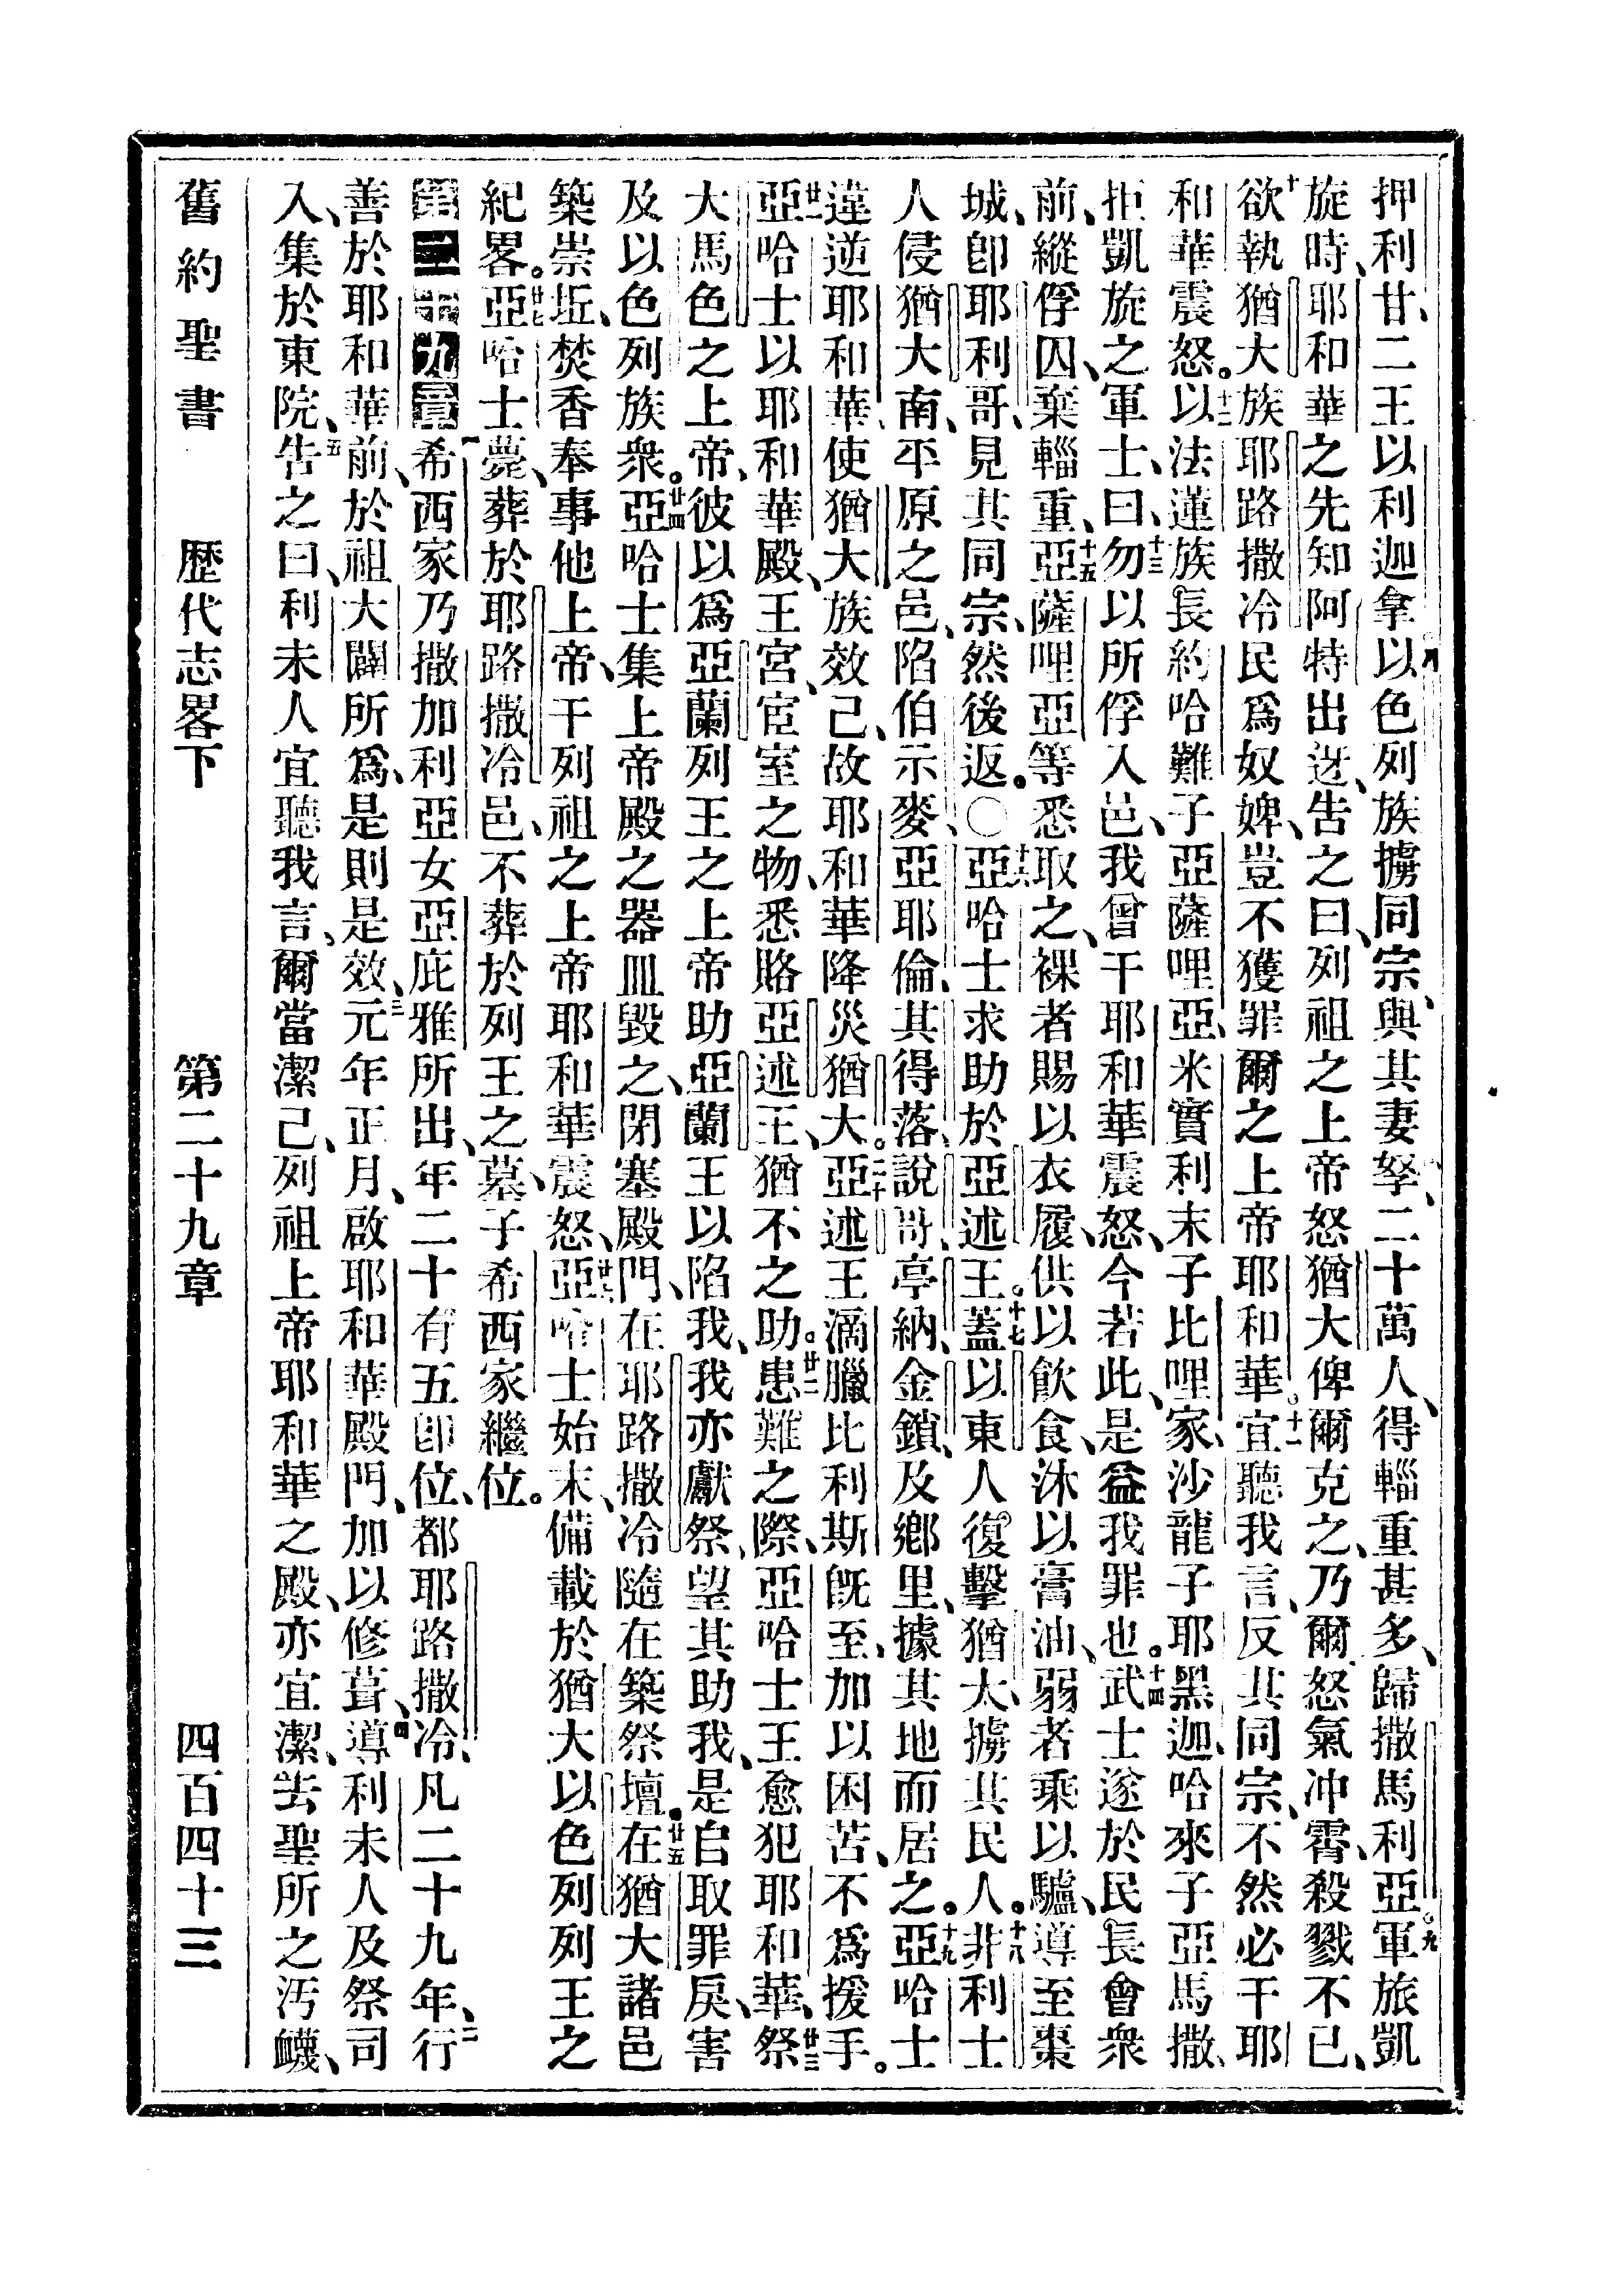 押利甘、二王以利迦拿、八以色列族擄同宗、與其妻孥、二十萬人、得輜重甚多、歸撒馬利亞。九軍旅凱
旋時、耶和華之先知阿特出迓、告之曰、列祖之上帝怒猶大俾爾克之、乃爾怒氣冲霄、殺戮不已、
十欲執猶大族耶路撒冷民爲奴婢、豈不獲罪爾之上帝耶和華。十一宜聽我言、反其同宗、不然必干耶
和華震怒。十二以法蓮族長約哈難子亞薩哩亞、米實利末子比哩家、沙龍子耶黑迦、哈來子亞馬撒、
拒凱旋之軍士、曰、十三勿以所俘入邑、我曾干耶和華震怒、今若此、是益我罪也。十四武士遂於民長會衆
前、縱俘囚、棄輜重、十五亞薩哩亞等悉取之、裸者賜以衣履、供以飲食、沐以膏油、弱者乘以驢、導至棗
城、卽耶利哥、見其同宗、然後返。〇十六亞哈士求助於亞述王。十七蓋以東人復擊猶大、擄其民人。十八非利士
人侵猶大南、平原之邑、陷伯示麥、亞耶倫、其得落、說哥、亭納、金鎖、及鄉里、據其地而居之。十九亞哈士
違逆耶和華、使猶大族效己、故耶和華降災猶大。二十亞述王滴臘比利斯旣至、加以困苦、不爲援手。
廿一亞哈士以耶和華殿、王宮、宦室之物、悉賂亞述王、猶不之助。廿二患難之際、亞哈士王愈犯耶和華、廿三祭
大馬色之上帝、彼以爲亞蘭列王之上帝助亞蘭王以陷我、我亦獻祭、望其助我、是自取罪戾、害
及以色列族衆。廿四亞哈士集上帝殿之器皿毀之、閉塞殿門、在耶路撒冷隨在築祭壇。廿五在猶大諸邑
築崇坵、焚香奉事他上帝、干列祖之上帝耶和華震怒、廿六亞哈士始末、備載於猶大以色列列王之
紀畧。廿七亞哈士薨、葬於耶路撒冷邑、不葬於列王之墓、子希西家繼位。
第二十九章一希西家乃撒加利亞女亞庇雅所出、年二十有五卽位、都耶路撒冷、凡二十九年、二行
善於耶和華前、於祖大闢所爲、是則是效、三元年正月、啟耶和華殿門、加以修葺、四導利未人及祭司
入、集於東院、五告之曰、利未人宜聽我言、爾當潔己、列祖上帝耶和華之殿、亦宜潔、去聖所之汚衊、
舊約聖書 歷代志畧下 第二十九章 四百四十三